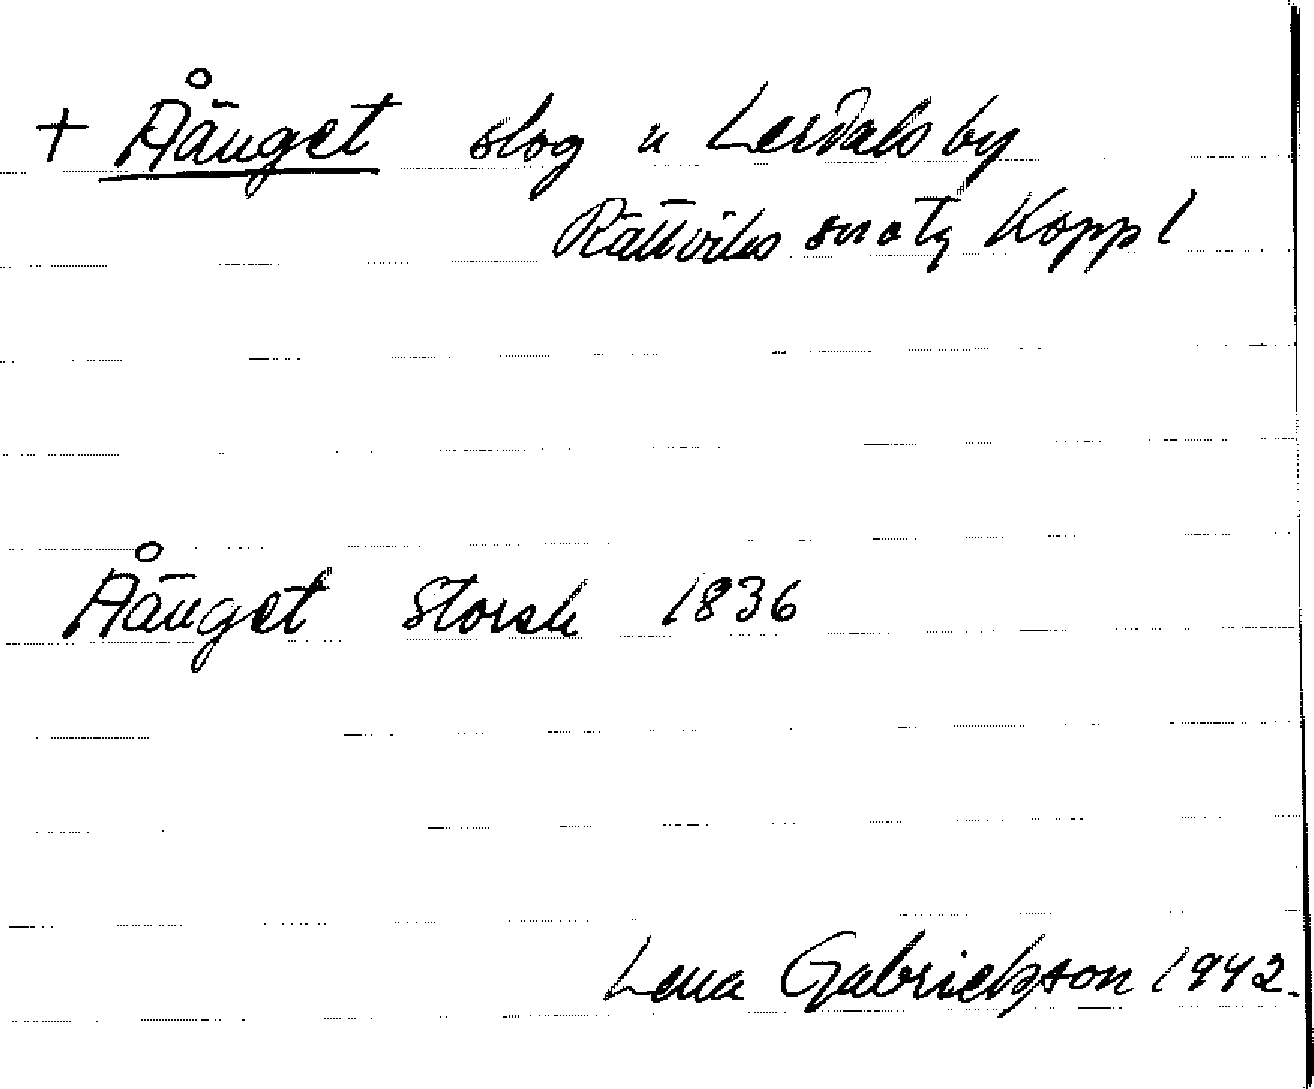 + Åänget slog u Lerdals by
Rättviks sn o tg Koppl
Åänget Storsk 1836
Lena Gabrielsson 1942.